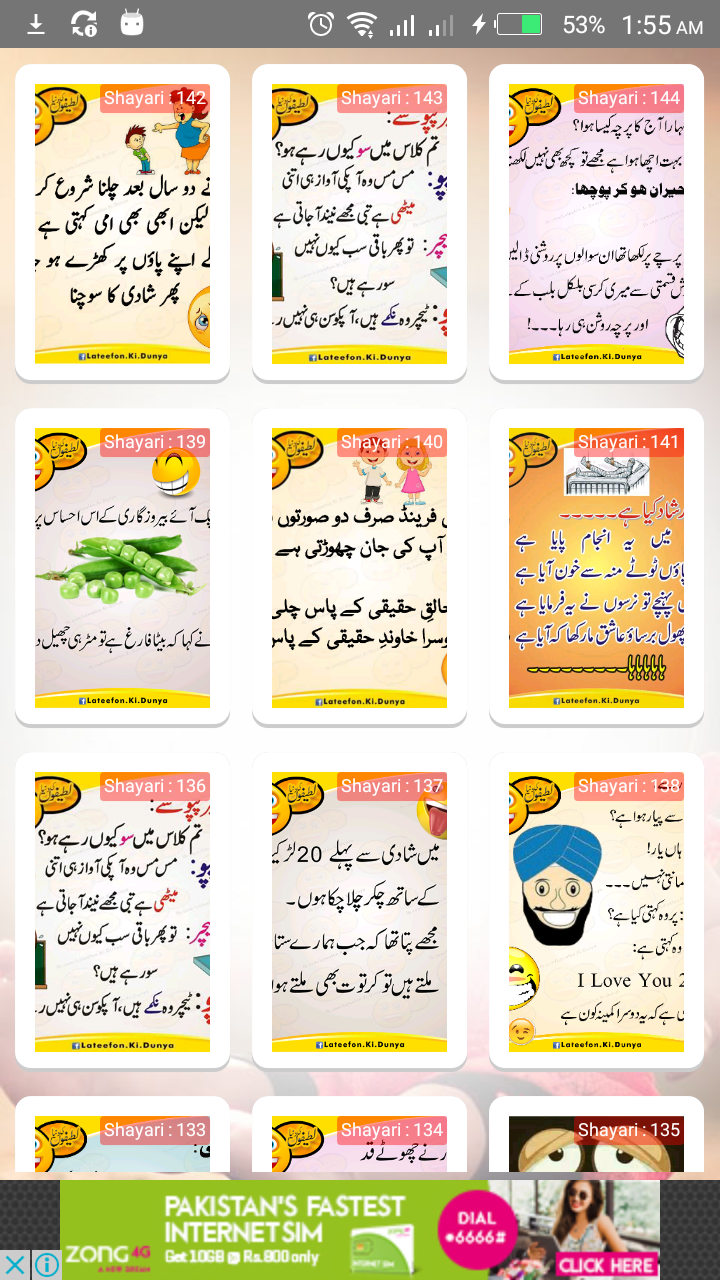 53% 1:55 AM
Shayari : 142
دو سال بعد چلنا شروع کر
لیکن ابھی بھی امی کہتی ہے
اپنے پاؤں پر کھڑے ہو
پھر شادی کا سوچنا
Lateefon.Ki.Dunya
Shayari : 143
تم کلاس میں سو کیوں رہے ہو؟
مس مس وہ آپکی آواز ہی اتنی
میٹھی ہے تبی مجھے نیند آجاتی ہے
تو پھر باقی سب کیوں نہیں
سو رہے ہیں؟
ٹیچر وہ نکمے ہیں، آپکو سن ہی نہیں
Lateefon.Ki.Dunya
Shayari : 144
آج کا پرچہ کیسا ہوا؟
بہت اچھا ہوا ہے مجھے تو کچھ بھی نہیں
حیران ھو کر پوچھا:
پرچے پر لکھا تھا ان سوالوں پر روشنی
قسمتی سے میری کرسی بلکل بلب کے
اور پرچہ روشن ہی رہا۔۔۔!
Lateefon.Ki.Dunya
Shayari : 139
آئے بیروزگاری کے اس احساس پر
نے کہا کہ بیٹا فارغ ہے تو مٹر ہی چھیل
Lateefon.Ki.Dunya
Shayari : 140
فرینڈ صرف دو صورتوں
آپ کی جان چھوڑتی ہے
خالقِ حقیقی کے پاس چلی
دوسرا خاوندِ حقیقی کے پاس
Lateefon.Ki.Dunya
Shayari : 141
کیا ہے۔۔۔۔۔
میں یہ انجام پایا ہے
پاؤں ٹوٹے منہ سے خون آیا ہے
پہنچے تو نرسوں نے یہ فرمایا ہے
پھول برساؤ عاشق مار کھا کہ آیا ہے
ہاہاہاہا۔۔۔۔۔۔۔۔
Lateefon.Ki.Dunya
Shayari : 136
تم کلاس میں سو کیوں رہے ہو؟
مس مس وہ آپکی آواز ہی اتنی
میٹھی ہے تبی مجھے نیند آجاتی ہے
تو پھر باقی سب کیوں نہیں
سو رہے ہیں؟
ٹیچر وہ نکمے ہیں، آپکو سن ہی نہیں
Lateefon.Ki.Dunya
Shayari : 137
میں شادی سے پہلے 20 لڑکیوں
کے ساتھ چکر چلا چکا ہوں۔
مجھے پتا تھا کہ جب ہمارے
ملتے ہیں تو کرتوت بھی ملتے
Lateefon.Ki.Dunya
Shayari : 138
سے پیار ہوا ہے؟
ہاں یار!
مانتی نہیں۔۔۔
پر وہ کہتی کیا ہے؟
وہ کہتی ہے:
I Love You 2
ہے کہ یہ دوسرا کمینہ کون ہے
Lateefon.Ki.Dunya
Shayari : 133
Shayari : 134
نے چھوٹے قد
Shayari : 135
ZONG 4G
A NEW DREAM
PAKISTAN'S FASTEST
INTERNET SIM
Get 10GB @ Rs.800 only
DIAL
*6666#
CLICK HERE